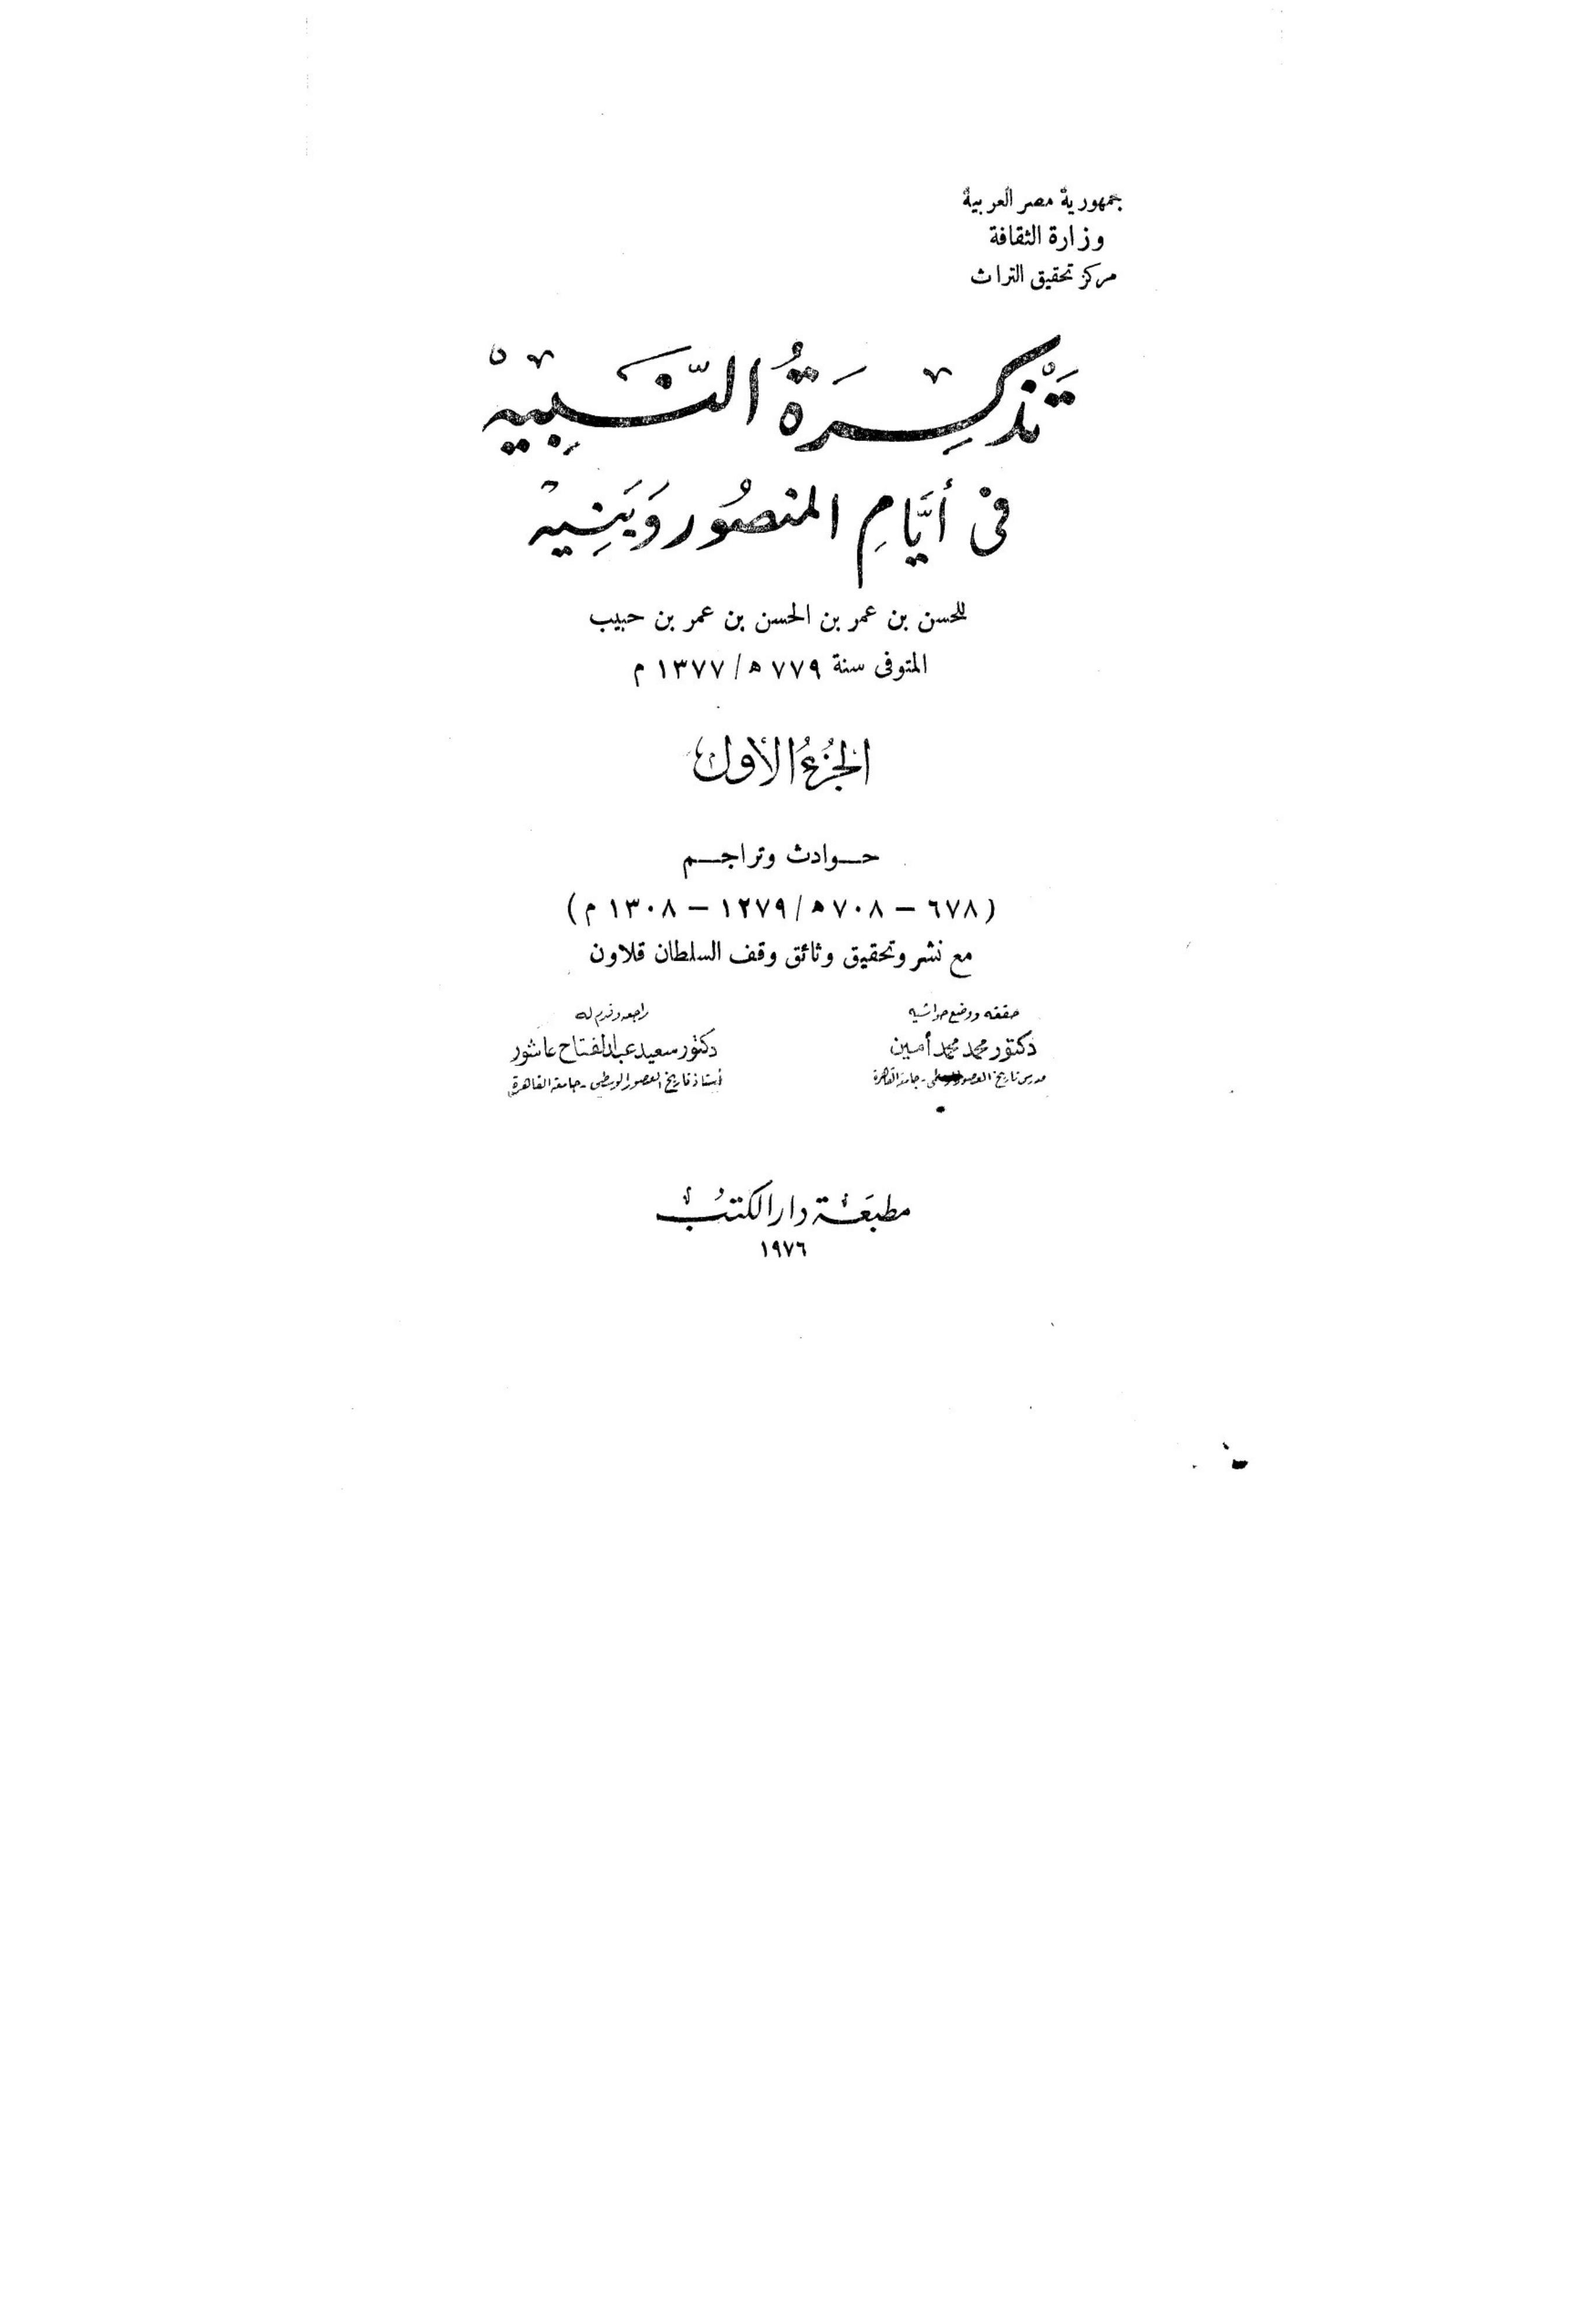 جمهورية مصر العربية
وزارة الثقافة
مركز تحقيق التراث
تَذْكِرَةُ النَّبِيهْ
فى أَيَّامِ المنصُور وَبَنِيهْ
للحسن بن عمر بن الحسن بن عمر بن حبيب
المتوفى سنة ٧٧٩ ه/ ١٣٧٧ م
الجُزءُ الأول
حـوادث وتراجـم
(٦٧٨ – ٧٠٨ ه/ ١٢٧٩ – ١٣٠٨ م)
مع نشر وتحقيق وثائق وقف السلطان قلاون
حققه ووضع حواشيه
دكتور محمد محمد أمين
مدرس تاريخ العصور الوسطى - جامعة القاهرة
راجعه وقدم له
دكتور سعيد عبد الفتاح عاشور
أستاذ تاريخ العصور الوسطى - جامعة القاهرة
مطبعَة دار الكتب
١٩٧٦